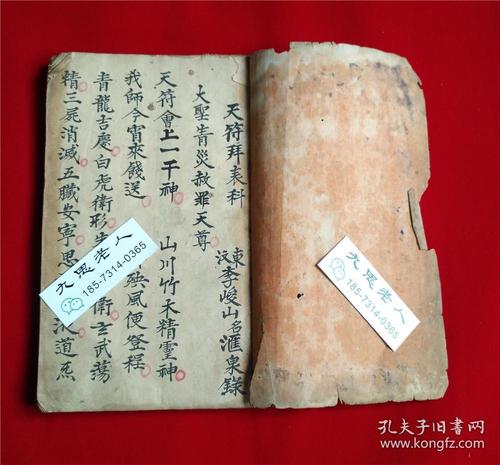 天符拜表科
東汶李峻山名滙泉錄
大聖眚災赦罪天尊
天符會上一干神
山川竹木精靈神
我師今宵來餞送
風便登程
青龍吉慶白虎衛形
衛玄武蕩
精三屍消滅五臟安寧思
道炁
九思老人
185-7314-0365
九思老人
185-7314-0365
孔夫子旧书网
www.kongfz.com